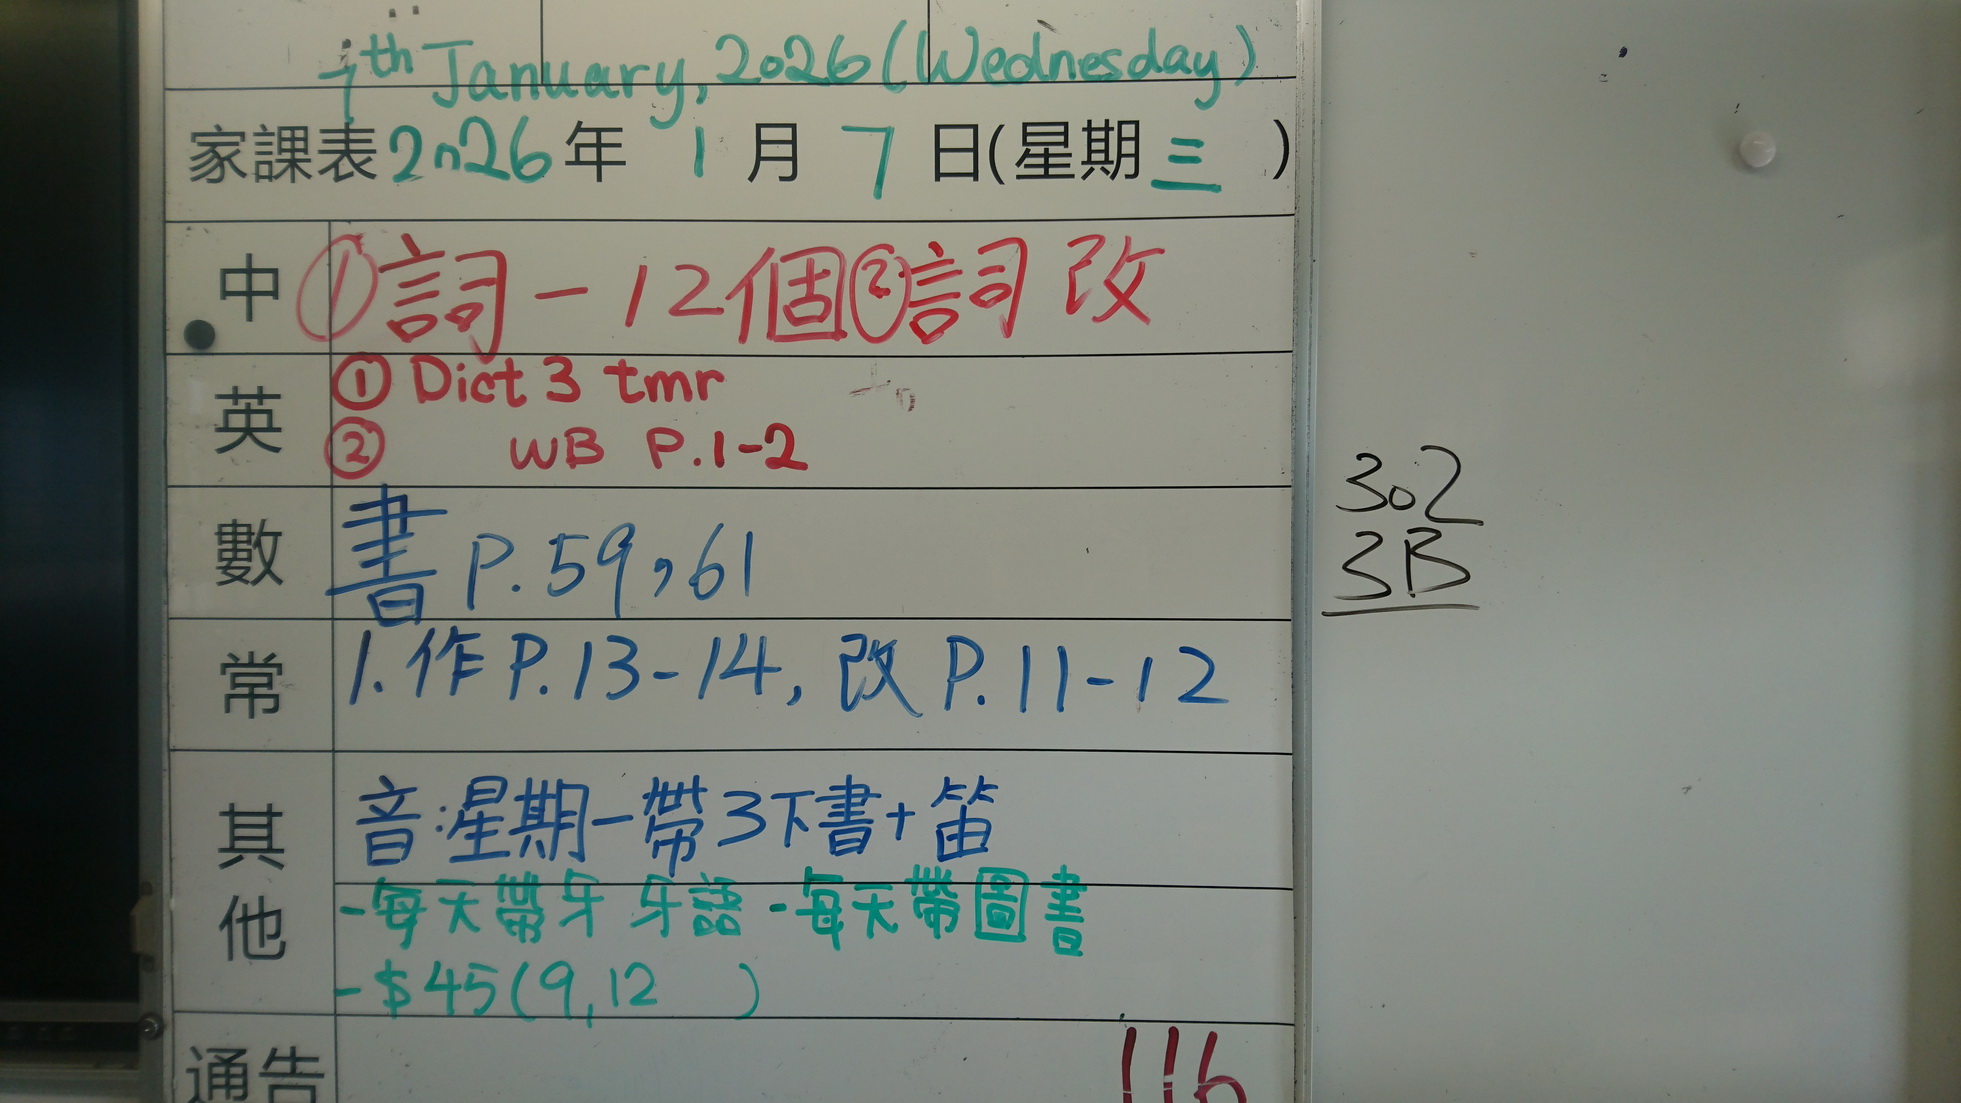 7th January, 2026 (Wednesday)
家課表 2026年 1 月 7 日(星期三 )
中 ①詞－12個②詞改
英 ① Dict 3 tmr
② WB P.1-2
數 書 P.59,61
常 1.作P.13-14, 改 P.11-12
其他 音:星期一帶3下書+笛
-每天帶牙牙語 -每天帶圖書
-$45(9,12 )
通告 116
302
3B